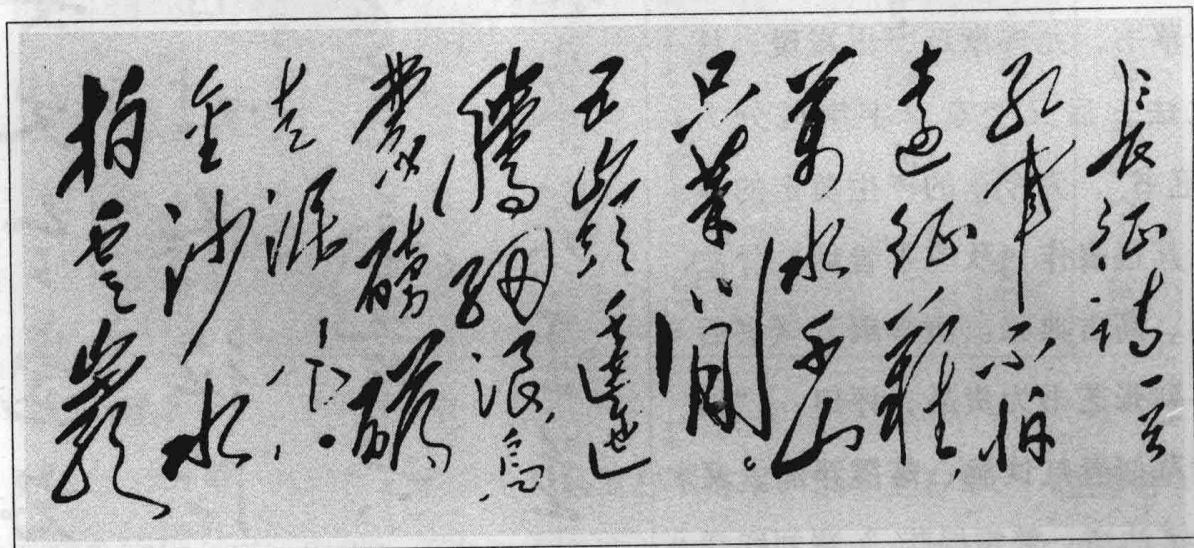 長征詩一首
紅軍不怕
遠征難,
萬水千山
只等閒。
五嶺逶迤
騰細浪,烏
蒙磅礴
走泥丸。
金沙水
拍雲巖